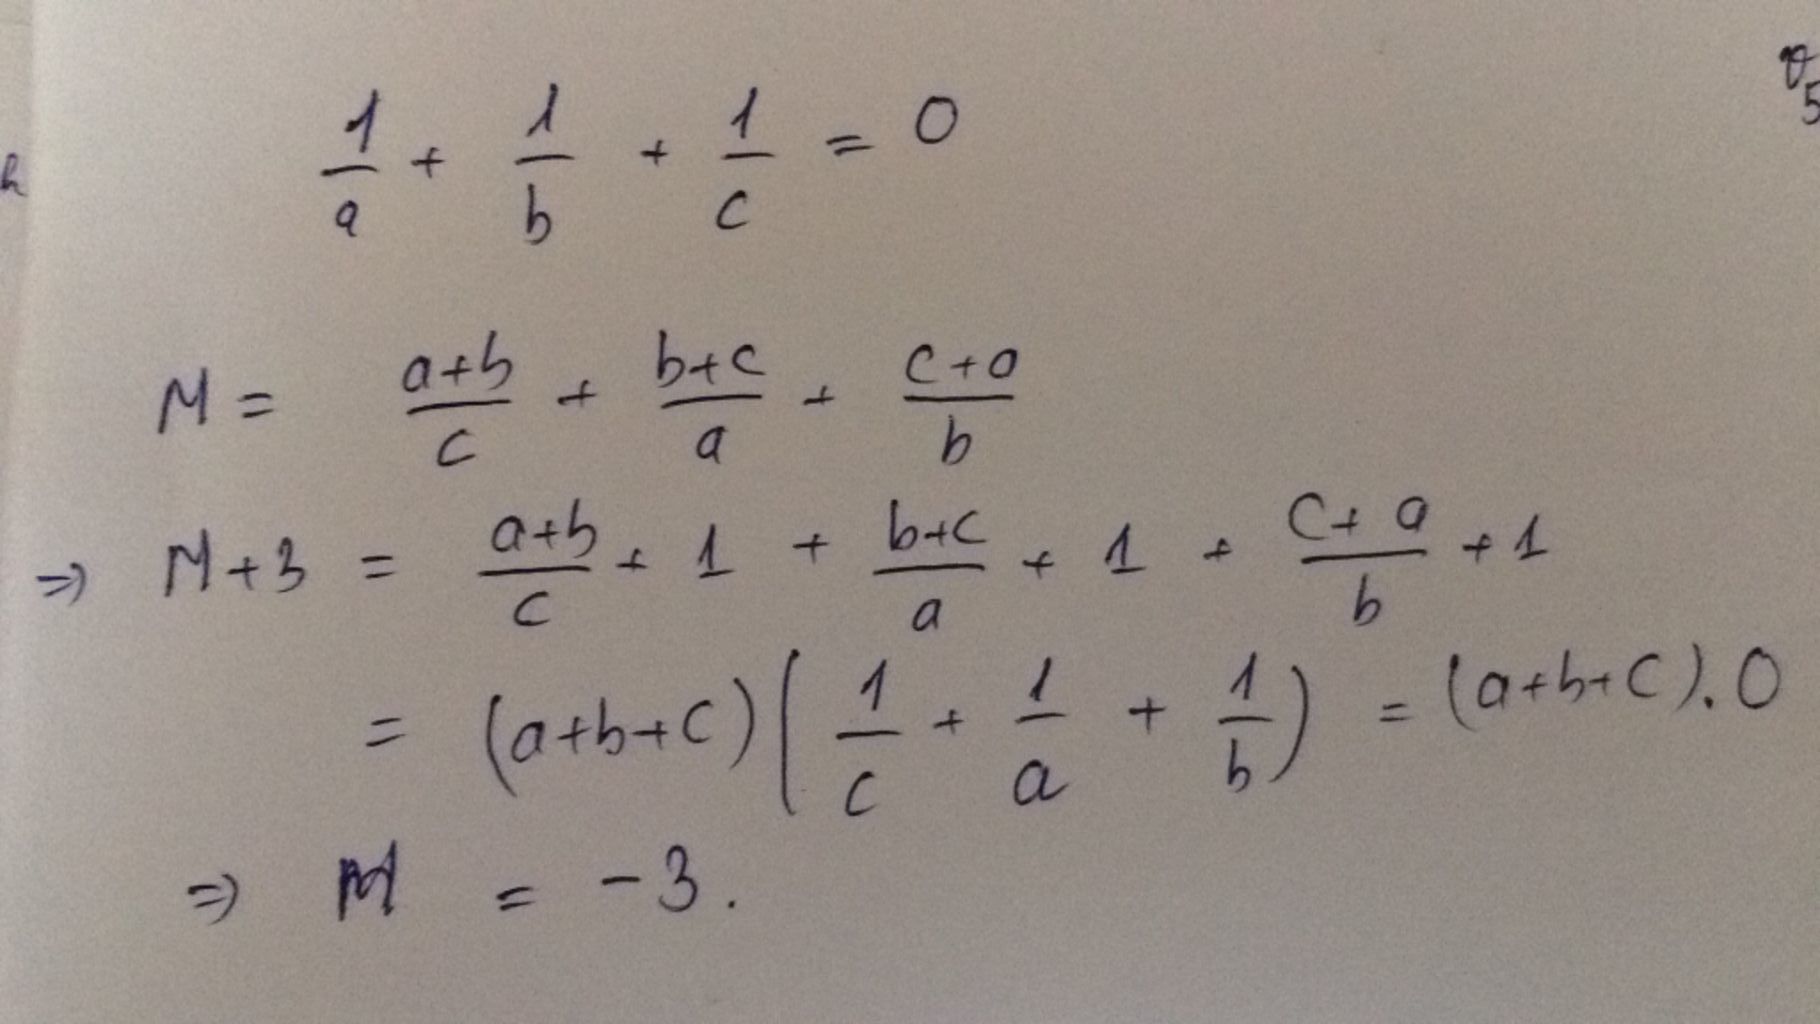 1/a + 1/b + 1/c = 0
M = (a+b)/c + (b+c)/a + (c+a)/b
⇒ M+3 = (a+b)/c + 1 + (b+c)/a + 1 + (c+a)/b + 1
= (a+b+c)(1/c + 1/a + 1/b) = (a+b+c).0
⇒ M = -3.